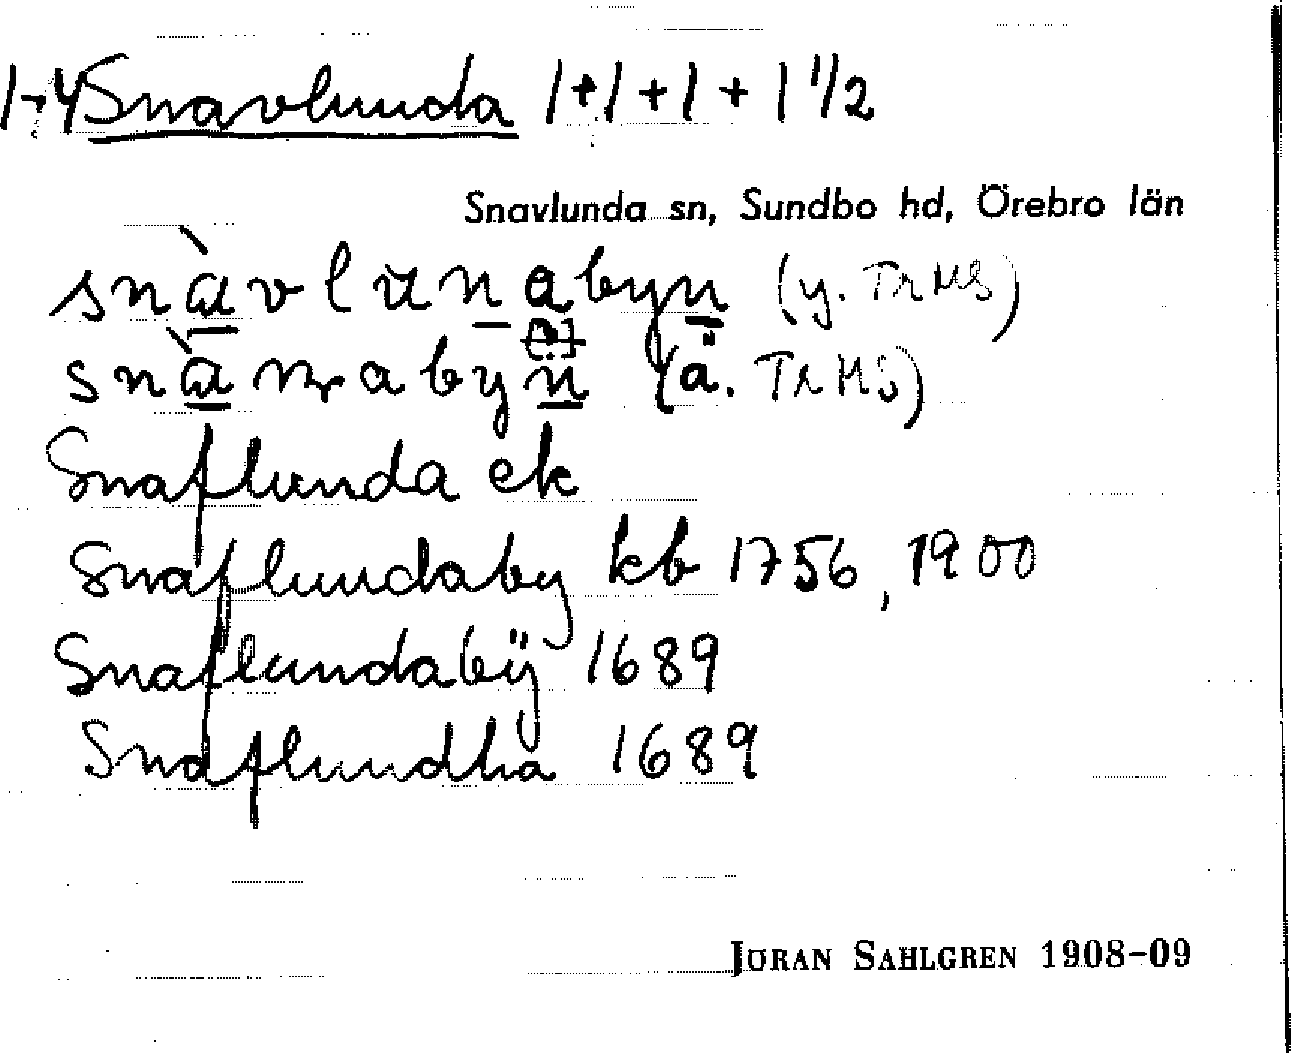 1-4 Snavlunda 1+1+1+1 1/2
Snavlunda sn, Sundbo hd, Örebro län
snàvlunabyn (y. TrMS)
(ä. TrMS)
Snaflunda ek
Snaflundaby kb 1756, 1900
Snaflundabÿ 1689
Snaflundha 1689
JÖRAN SAHLGREN 1908-09